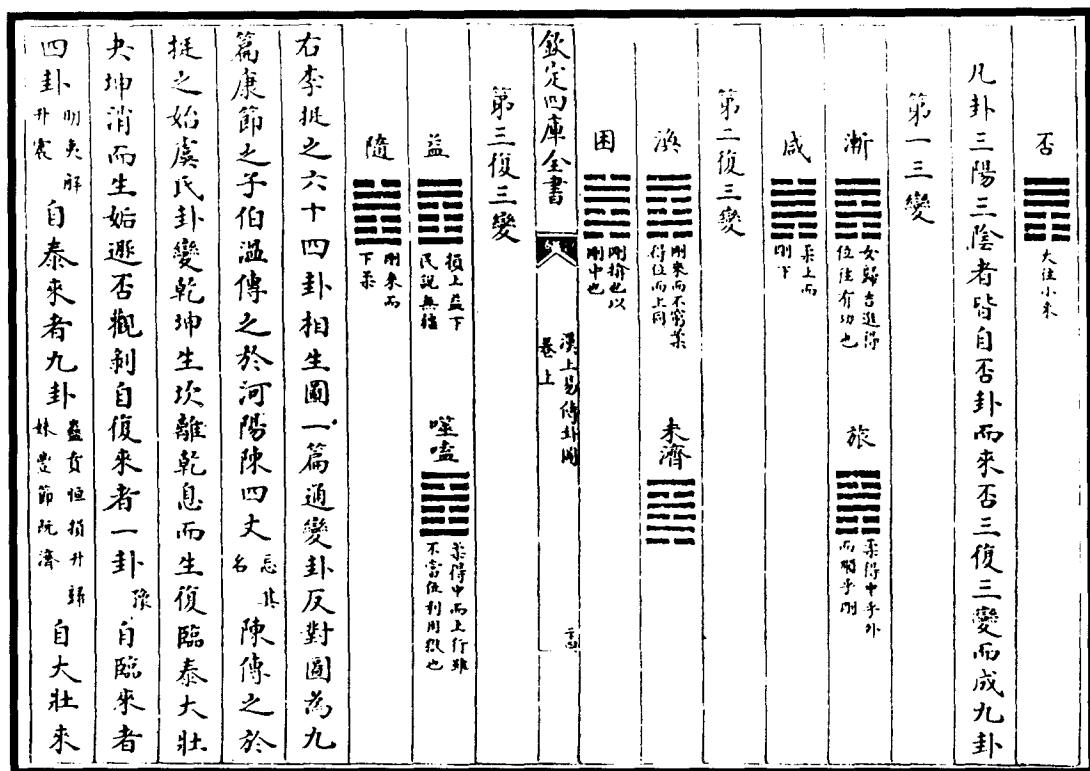 否 大往小來
凡卦三陽三陰者皆自否卦而來否三復三變而成九卦
第一三變
漸 女歸吉進得位往有功也 旅 柔得中乎外而順乎剛
咸 柔上而剛下
第二復三變
渙 剛來而不窮柔得位而上同 未濟
困 剛揜也以剛中也
欽定四庫全書 漢上易傳卦圖 卷上
第三復三變
益 損上益下民說無疆 噬嗑 柔得中而上行雖不當位利用獄也
隨 剛來而下柔
右李挺之六十四卦相生圖一篇通變卦反對圖為九
篇康節之子伯溫傳之於河陽陳四丈忘其名陳傳之於
挺之始虞氏卦變乾坤生坎離乾息而生復臨泰大壯
夬坤消而生姤遯否觀剝自復來者一卦豫自臨來者
四卦明夷解升震自泰來者九卦蠱賁恒損井歸妹豐節既濟自大壯來